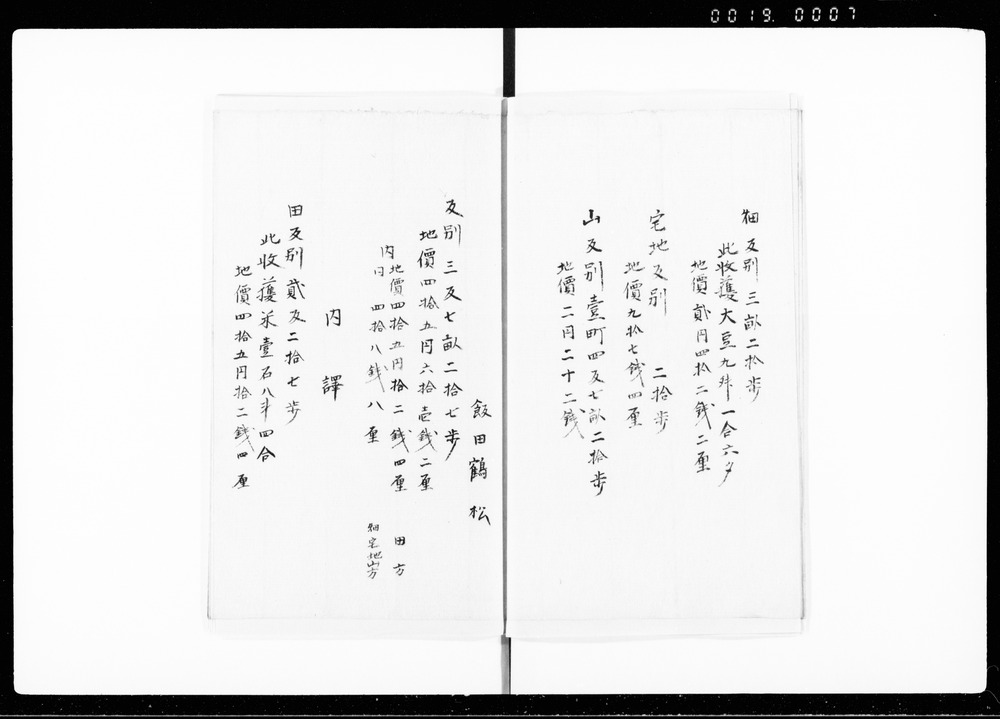 0019. 0007
畑反別三畝二拾歩
此收獲大豆九舛一合六夕
地價貳円四拾二錢二厘
宅地反別 二拾歩
地價九拾七錢四厘
山反別壹町四反七畝二拾歩
地價二円二十二錢
飯田鶴松
反別三反七畝二拾七歩
地價四拾五円六拾壱錢二厘
内 地價四拾五円拾二錢四厘 田方
同 四拾八錢八厘 畑宅地山方
内譯
田反別貳反二拾七歩
此收獲米壹石八斗四合
地價四拾五円拾二錢四厘